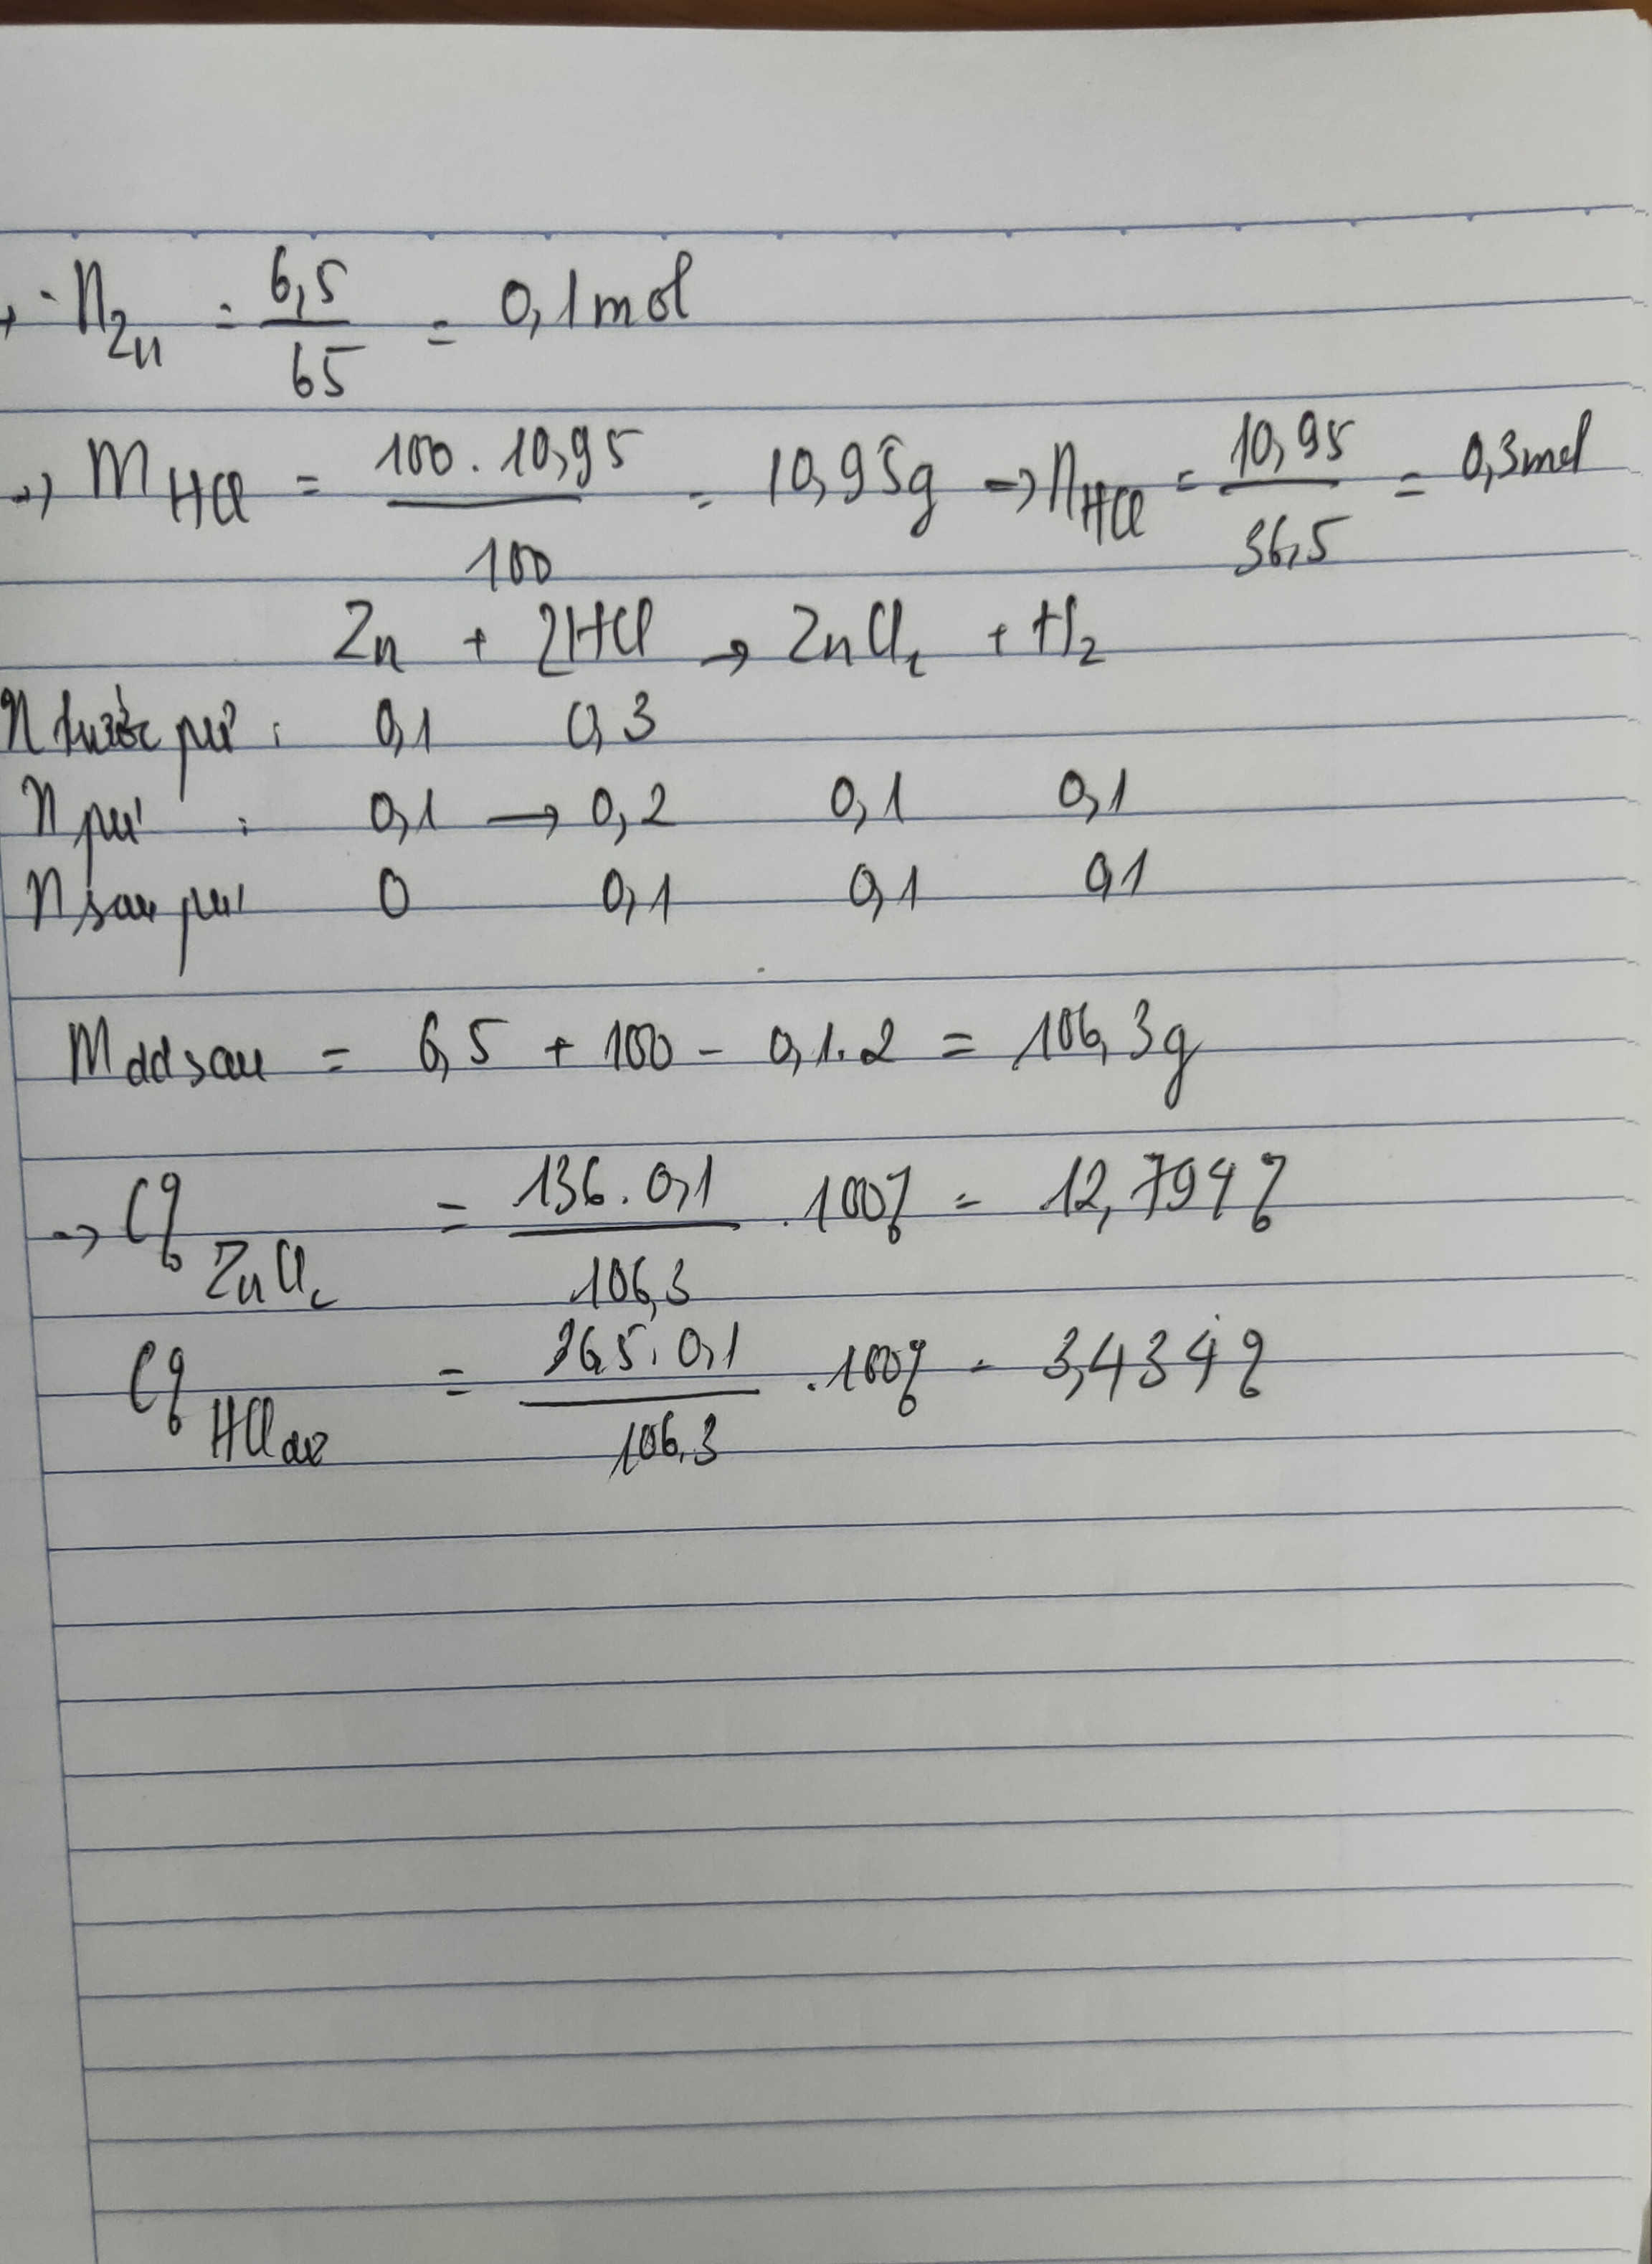 → - nZn = 6,5/65 = 0,1 mol
→ mHCl = 100.10,95/100 = 10,95g → nHCl = 10,95/36,5 = 0,3 mol
Zn + 2HCl → ZnCl2 + H2
n trước pứ : 0,1 0,3
n pứ : 0,1 → 0,2 0,1 0,1
n sau pứ 0 0,1 0,1 0,1
m dd sau = 6,5 + 100 - 0,1.2 = 106,3g
→ C% ZnCl2 = 136.0,1/106,3 .100% = 12,794%
C% HCl dư = 36,5.0,1/106,3 .100% = 3,434%